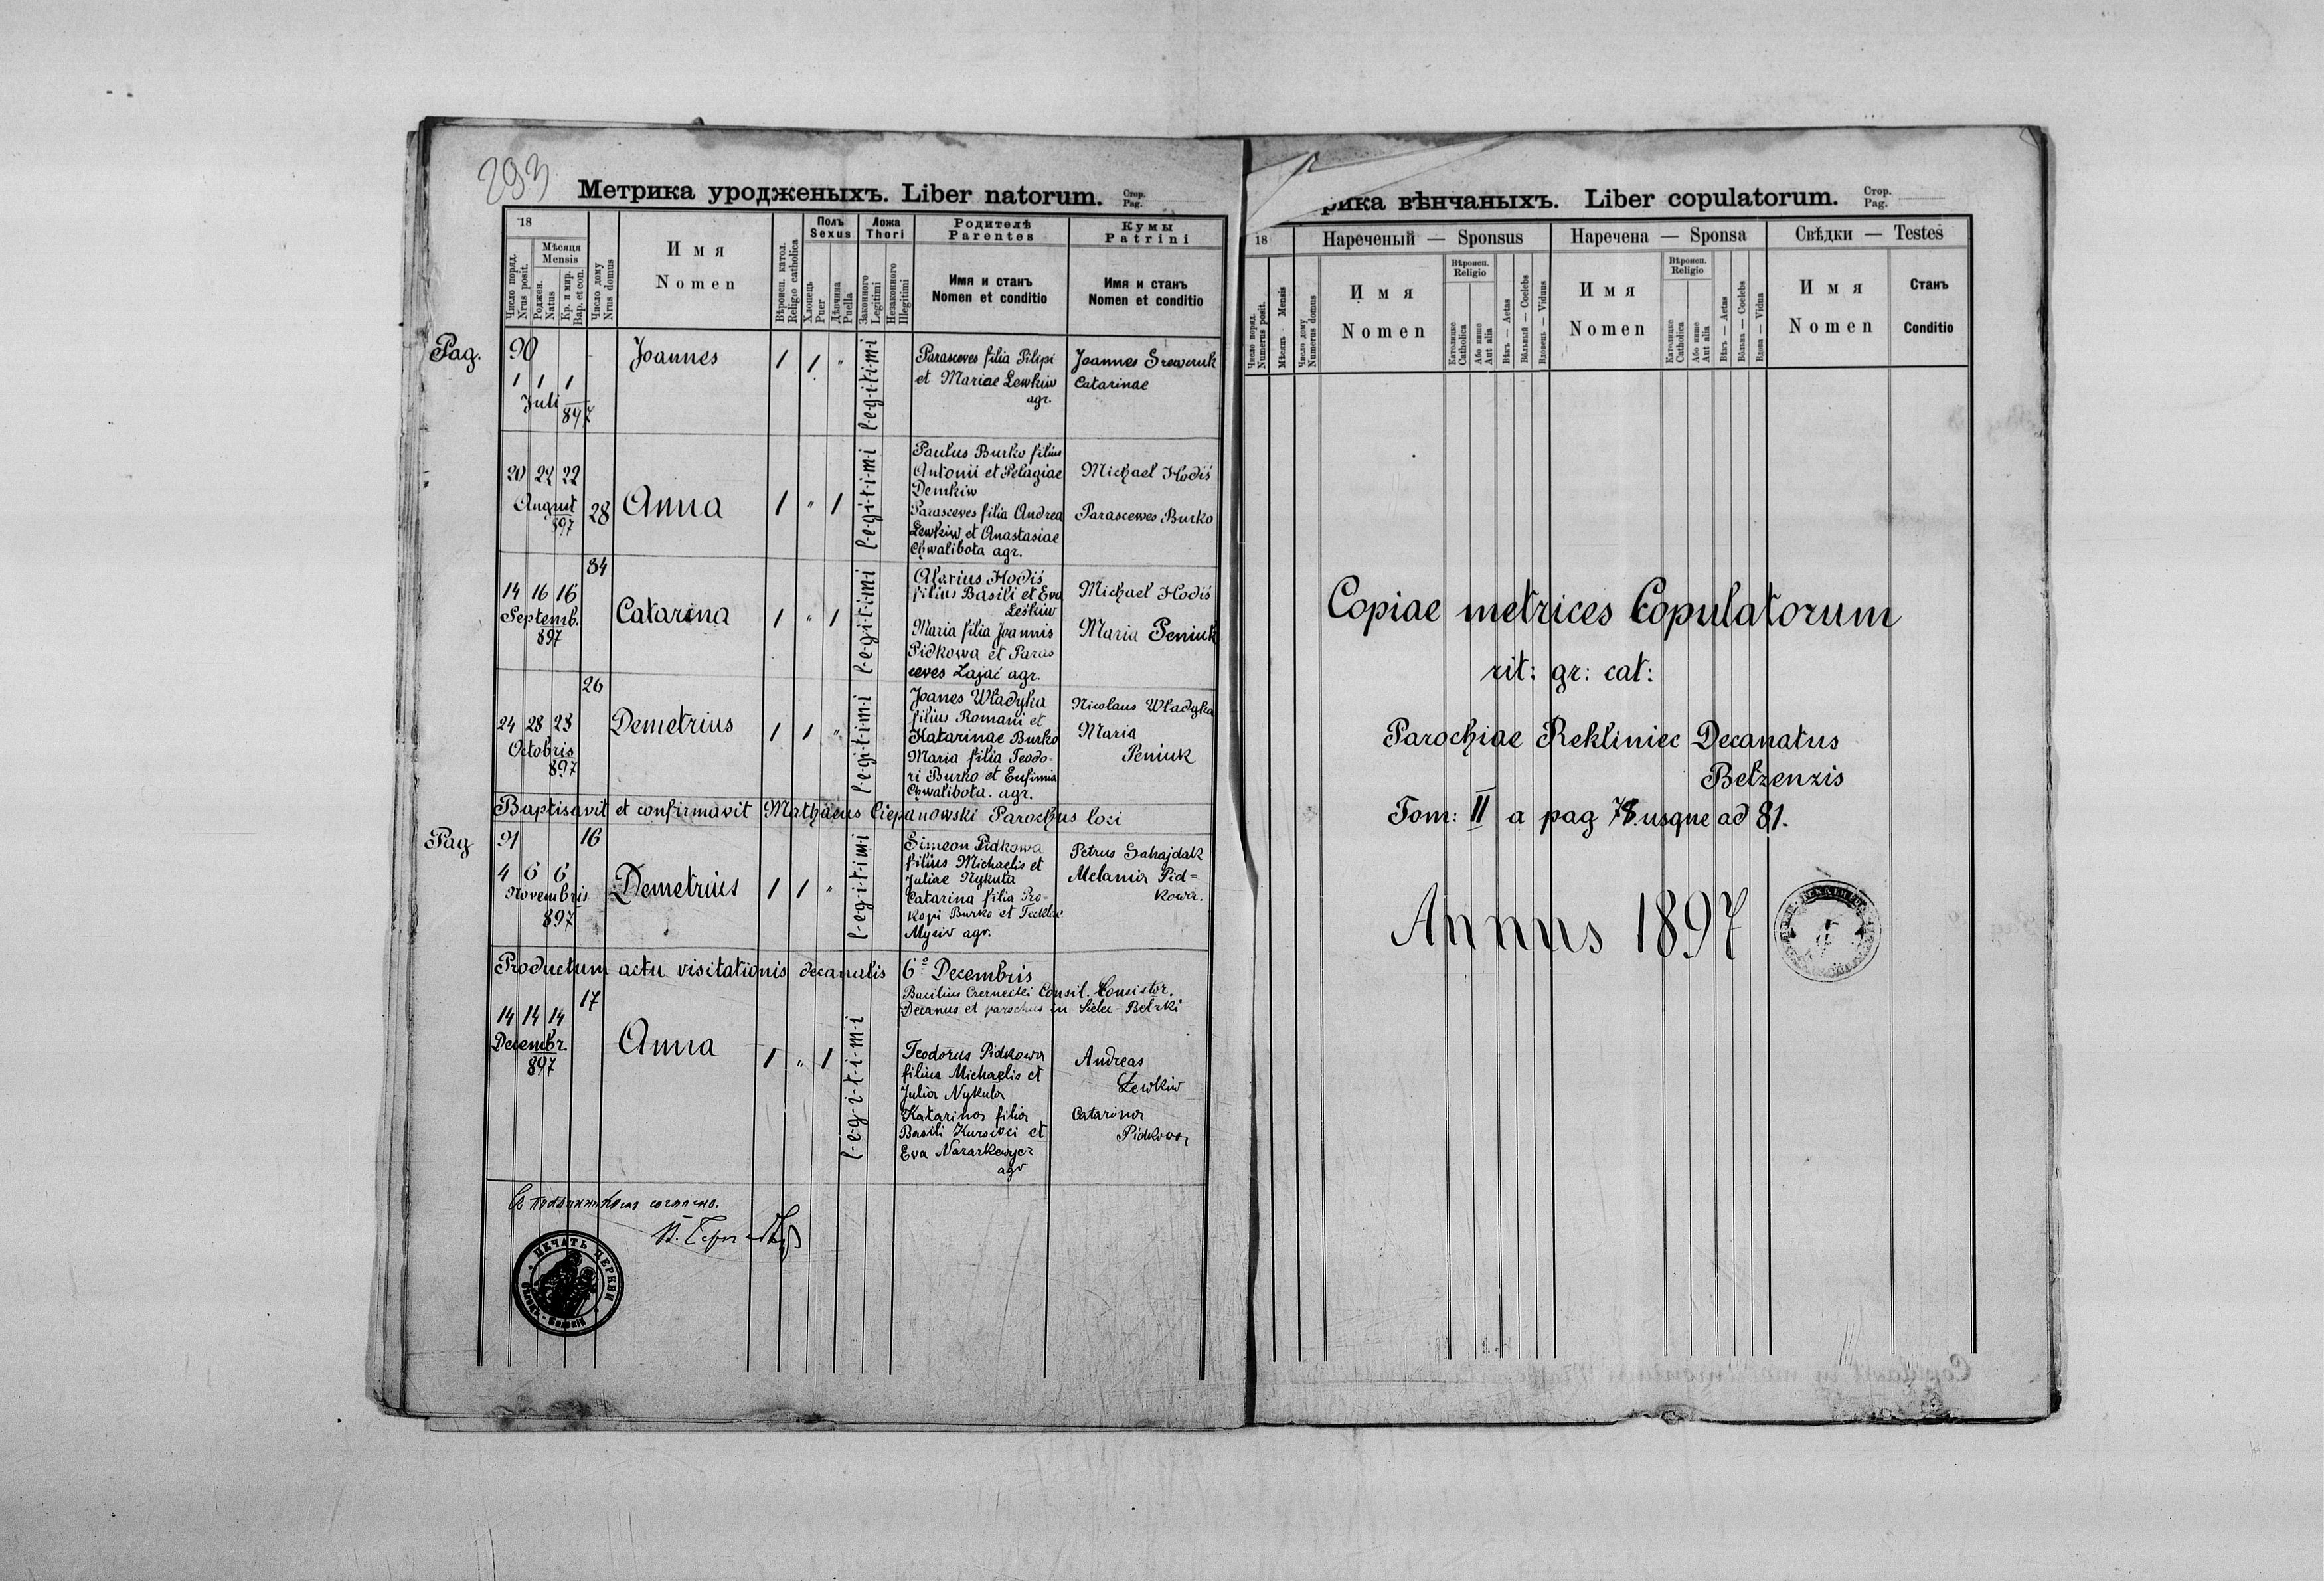 293
Метрика уродженыхъ. Liber natorum. Стор. Pag.
18
Число поряд. Nrus posit.
Мѣсяця Mensis
Роджен. Natus
Кр. и мир. Bap. et con.
Число дому Nrus domus
Имя
Nomen
Вѣроисп. катол. Religio catholica
Полъ Sexus
Хлопець Puer
Дѣвчина Puella
Ложа Thori
Законного Legitimi
Незаконного Illegitimi
Родителѣ Parentes
Имя и станъ
Nomen et conditio
Кумы Patrini
Имя и станъ
Nomen et conditio
Pag. 90
1 1 1
Juli
897
Joannes
1 1 "
l-e-g-i-t-i-m-i
Parasceves filia Pilipi
et Mariae Lewkiw
agr.
Joannes
Catarinae
20 22 22
August
897
28
Anna
1 " 1
l-e-g-i-t-i-m-i
Paulus Burko filius
Antonii et Pelagiae
Demkiw
Parasceves filia Andrea
Lewkiw et Anastasiae
Chwalibota agr.
Michael Hodiś
Parascewes Burko
34
14 16 16
Septemb.
897
Catarina
1 " 1
l-e-g-i-t-i-m-i
Alexius Hodiś
filius Basili et Eva
Leśkiw
Maria filia Joannis
Pidkowa et Paras
ceves Zajać agr.
Michael Hodiś
Maria Peniuk
26
24 28 28
Octobris
897
Demetrius
1 1 "
l-e-g-i-t-i-m-i
Joanes Władyka
filius Romani et
Katarinae Burko
Maria filia Teodo-
ri Burko et Eufimia
Chwalibota. agr.
Nicolaus Władyka
Maria
Peniuk
Baptisavit et confirmavit Mathaeus Ciepanowski Parochus loci
Pag 91
16
4 6 6
Novembris
897
Demetrius
1 1 "
l-e-g-i-t-i-m-i
Simeon Pidkowa
filius Michaelis et
Juliae Nykula
Catarina filia Pro-
kopi Burko et Teckla
Myciw agr.
Petrus Sahajdak
Melania Pid=
kowa.
Productum actu visitationis decanalis 6º Decembris
Basilius Czernecki Consil. Consistor.
Decanus et parochus in Sielec-Belzki
17
14 14 14
Decembr.
897
Anna
1 " 1
l-e-g-i-t-i-m-i
Teodorus Pidkowa
filius Michaelis et
Julia Nykula
Katarina filia
Basili et
Eva Nazarkewycz
agr
Andreas
Lewkiw
Catarina
Pidkowa
ПЕЧАТЬ ЦЕРКВИ
рика вѣнчаныхъ. Liber copulatorum. Стор. Pag.
18
Число поряд. Numerus posit.
Мѣсяць Mensis
Число дому Numerus domus
Нареченый — Sponsus
Имя
Nomen
Вѣроисп. Religio
Католицке Catholica
Або инне Aut alia
Вѣкъ — Aetas
Вôльный — Coelebs
Вдовець — Viduus
Наречена — Sponsa
Имя
Nomen
Вѣроисп. Religio
Католицке Catholica
Або инне Aut alia
Вѣкъ — Aetas
Вôльна — Coelebs
Вдова — Vidua
Свѣдки — Testes
Имя
Nomen
Станъ
Conditio
Copiae metrices Copulatorum
rit: gr: cat:
Parochiae Rekliniec Decanatus
Belzenzis
Tom: II a pag 78. usque ad 81.
Annus 1897